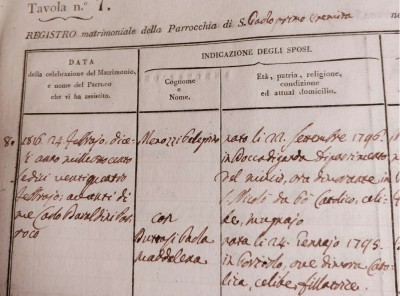 Tavola n.° 1.
REGISTRO matrimoniale della Parrocchia di S. Paolo primo eremita
DATA
della celebrazione del Matrimonio,
e nome del Parroco
che vi ha assistito.
INDICAZIONE DEGLI SPOSI.
Cognome
e
Nome.
Età, patria, religione,
condizione
ed attual domicilio.
8.
1816 24 febrajo, dieci
anno mille otto cento
sedici ventiquattro
febrajo, avanti di
me Carlo Baraldini Par
roco
Menozzi
con
Paola
Maddalena
nato li 22 Settembre 1796
in Boccadiganda dipartimento
del mincio, ora dimorante in
S. Nicolò da Pò Catolico, celi
be, mugnajo
nata li 24 Gennajo 1795
in Portiolo, ove dimora Cato
lica, celibe, fillatrice.